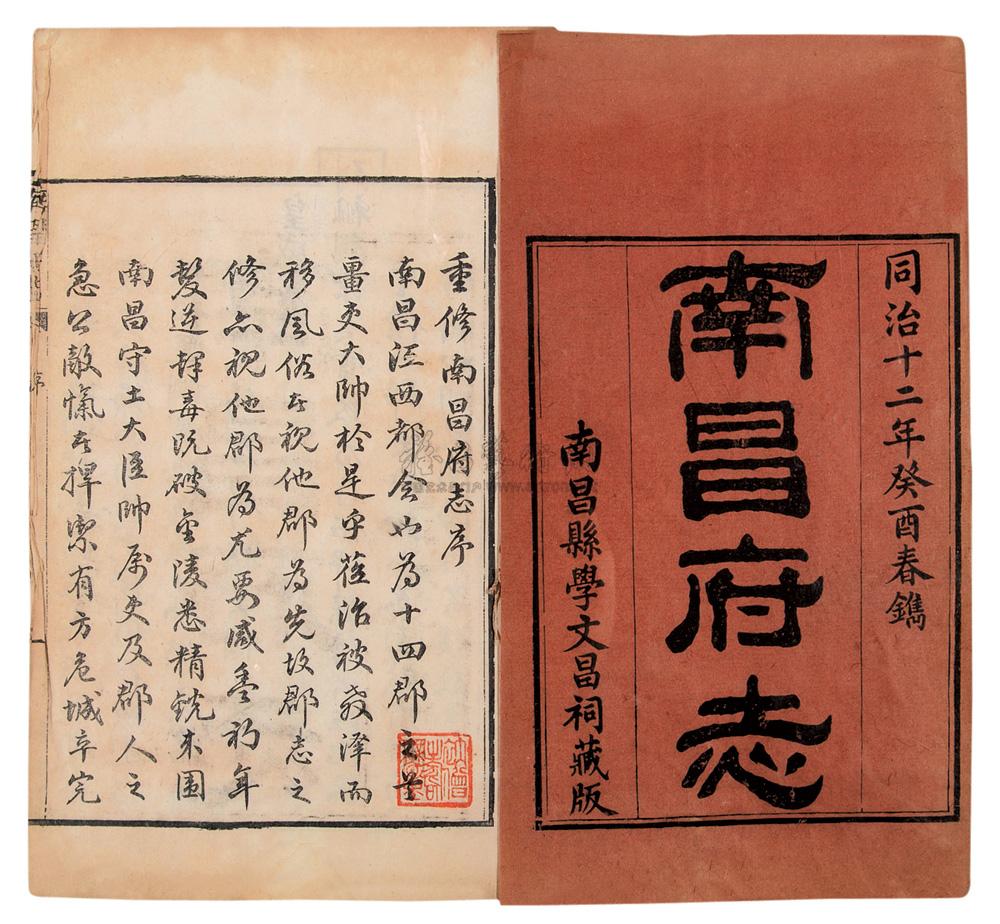 同治十二年癸酉春鐫
南昌府志
南昌縣學文昌祠藏版
重修南昌府志序
南昌江西都會也為十四郡之首
畺吏大帥於是乎蒞治被政澤而
移風俗者視他郡為先故郡志之
修亦視他郡為尤要咸豐初年
髮逆肆毒既破金陵悉精銳來圍
南昌守土大臣帥屬吏及郡人之
急公敵愾者捍禦有方危城卒完
序